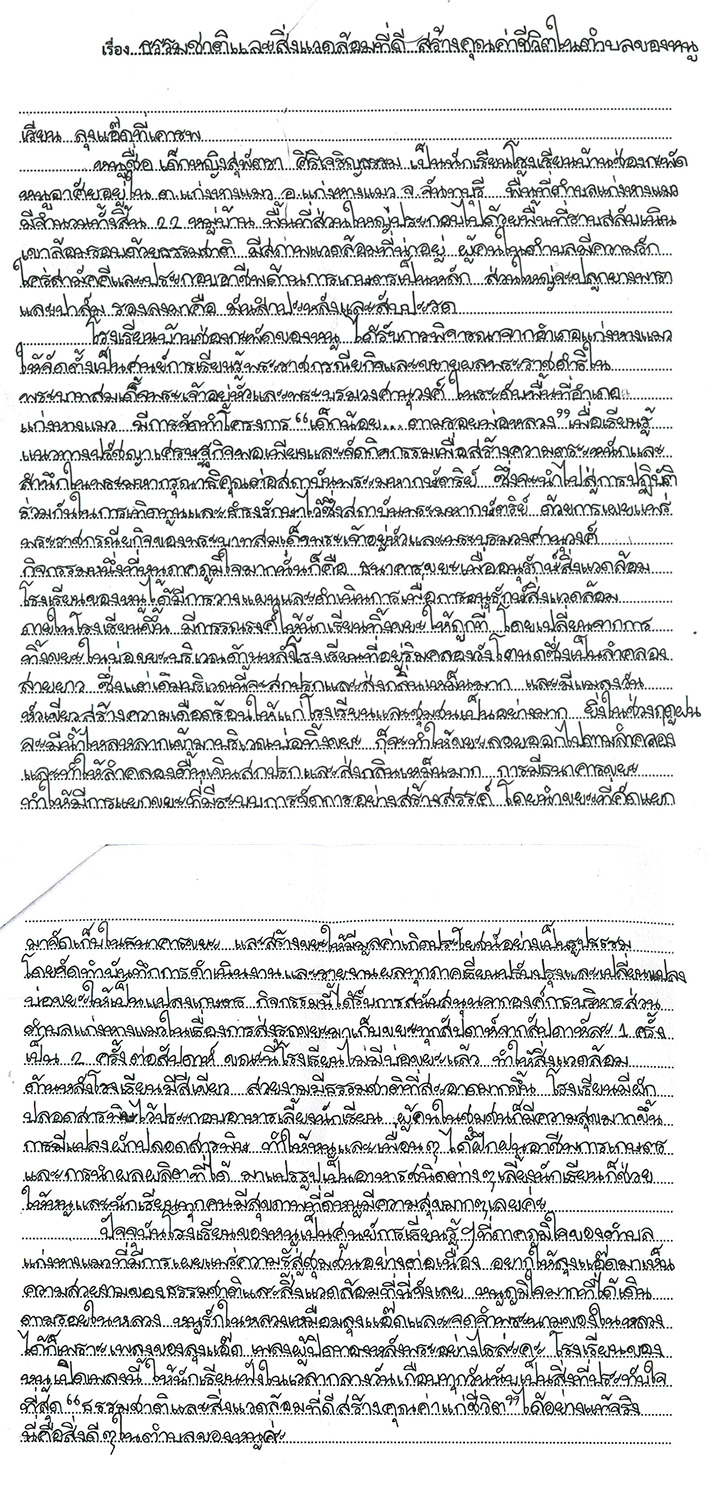 เรื่อง ธรรมชาติและสิ่งแวดล้อมที่ดี สร้างคุณค่าชีวิตในตำบลของหนู
เรียน ลุงแอ๊ดที่เคารพ
หนูชื่อ เด็กหญิงสุพัตรา ศิริเจริญธรรม เป็นนักเรียนโรงเรียนบ้านช่องกะพัด
หนูอาศัยอยู่ใน ต.แก่งหางแมว อ.แก่งหางแมว จ.จันทบุรี พื้นที่ตำบลแก่งหางแมว
มีจำนวนทั้งสิ้น 22 หมู่บ้าน พื้นที่ส่วนใหญ่ประกอบไปด้วยพื้นที่ราบสลับเนิน
เขาล้อมรอบด้วยธรรมชาติ มีสภาพแวดล้อมที่น่าอยู่ ผู้คนในตำบลมีความรัก
ใคร่สามัคคีและประกอบอาชีพด้านการเกษตรเป็นหลัก ส่วนใหญ่จะปลูกยางพารา
และปาล์ม รองลงมาคือ มันสำปะหลังและสับปะรด
โรงเรียนบ้านช่องกะพัดของหนู ได้รับการพิจารณาจากอำเภอแก่งหางแมว
ให้จัดตั้งเป็นศูนย์การเรียนรู้พระราชกรณียกิจและขยายผลพระราชดำริใน
พระบาทสมเด็จพระเจ้าอยู่หัวและพระบรมวงศานุวงศ์ ในระดับพื้นที่อำเภอ
แก่งหางแมว มีการจัดทำโครงการ “เด็กน้อย...ตามรอยพ่อหลวง” เพื่อเรียนรู้
แนวทางปรัชญาเศรษฐกิจพอเพียงและจัดกิจกรรมเพื่อสร้างความตระหนักและ
สำนึกในพระมหากรุณาธิคุณต่อสถาบันพระมหากษัตริย์ ซึ่งจะนำไปสู่การปฏิบัติ
ร่วมกันในการเทิดทูนและธำรงรักษาไว้ซึ่งสถาบันพระมหากษัตริย์ ด้วยการเผยแพร่
พระราชกรณียกิจของพระบาทสมเด็จพระเจ้าอยู่หัวและพระบรมวงศานุวงศ์
กิจกรรมหนึ่งที่หนูภาคภูมิใจมากนั่นก็คือ ธนาคารขยะเพื่ออนุรักษ์สิ่งแวดล้อม
โรงเรียนของหนูได้มีการวางแผนและดำเนินการเพื่อการอนุรักษ์สิ่งแวดล้อม
ภายในโรงเรียนขึ้น มีการรณรงค์ให้นักเรียนทิ้งขยะให้ถูกที่ โดยเปลี่ยนจากการ
ทิ้งขยะในบ่อขยะบริเวณด้านหลังโรงเรียนที่อยู่ริมคลองวังโตนดซึ่งเป็นลำคลอง
สายยาว ซึ่งแต่เดิมบริเวณที่จะสกปรกและส่งกลิ่นเหม็นมาก และมีแมลงวัน
หัวเขียวสร้างความเดือดร้อนให้แก่โรงเรียนและชุมชนเป็นอย่างมาก ยิ่งในช่วงฤดูฝน
จะมีน้ำไหลหลากเข้ามาบริเวณบ่อทิ้งขยะ ก็จะทำให้ขยะลอยออกไปตามลำคลอง
และทำให้ลำคลองตื้นเขินสกปรกและส่งกลิ่นเหม็นมาก การมีธนาคารขยะ
ทำให้มีการแยกขยะที่มีระบบการจัดการอย่างสร้างสรรค์ โดยนำขยะที่คัดแยก
มาคัดเก็บในธนาคารขยะ และสร้างขยะให้มีมูลค่าเกิดประโยชน์อย่างเป็นรูปธรรม
โดยจัดทำบันทึกการดำเนินงานและรายงานผลทุกภาคเรียนปรับปรุงและเปลี่ยนแปลง
บ่อขยะให้เป็นแปลงเกษตร กิจกรรมนี้ได้รับการสนับสนุนจากองค์การบริหารส่วน
ตำบลแก่งหางแมวในเรื่องการส่งรถขยะมาเก็บขยะทุกสัปดาห์จากสัปดาห์ละ 1 ครั้ง
เป็น 2 ครั้งต่อสัปดาห์ ขณะนี้โรงเรียนไม่มีบ่อขยะแล้ว ทำให้สิ่งแวดล้อม
ด้านหลังโรงเรียนมีสีเขียว สวยงามมีธรรมชาติที่สะอาดมากขึ้น โรงเรียนมีผัก
ปลอดสารพิษไว้ประกอบอาหารเลี้ยงนักเรียน ผู้คนในชุมชนก็มีความสุขมากขึ้น
การมีแปลงผักปลอดสารพิษ ทำให้หนูและเพื่อนๆ ได้ฝึกฝนอาชีพการเกษตร
และการนำผลผลิตที่ได้ มาแปรรูปเป็นอาหารชนิดต่างๆ เลี้ยงนักเรียนก็ช่วย
ให้หนูและนักเรียนทุกคนมีสุขภาพที่ดีหนูมีความสุขมากๆเลยค่ะ
ปัจจุบันโรงเรียนของหนูเป็นศูนย์การเรียนรู้ฯที่ภาคภูมิใจของตำบล
แก่งหางแมวที่มีการเผยแพร่ความรู้สู่ชุมชนอย่างต่อเนื่อง อยากให้ลุงแอ๊ดมาเห็น
ความสวยงามของธรรมชาติและสิ่งแวดล้อมที่นี่จังเลย หนูภูมิใจมากที่ได้เดิน
ตามรอยในหลวง หนูรักในหลวงเหมือนลุงแอ๊ดและจดจำพระนามของในหลวง
ได้ก็เพราะเพลงของลุงแอ๊ด เพลงผู้ปิดทองหลังพระอย่างไรล่ะคะ โรงเรียนของ
หนูเปิดเพลงนี้ ให้นักเรียนฟังในเวลากลางวันเกือบทุกวันนับเป็นสิ่งที่ประทับใจ
ที่สุด “ธรรมชาติและสิ่งแวดล้อมที่ดีสร้างคุณค่าแก่ชีวิต” ได้อย่างแท้จริง
นี่คือสิ่งดีๆในตำบลของหนูค่ะ